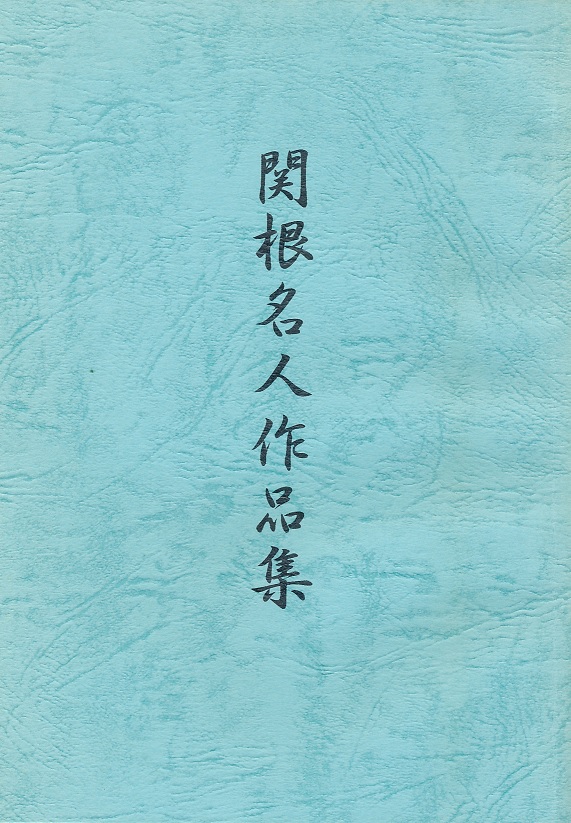 関根名人作品集